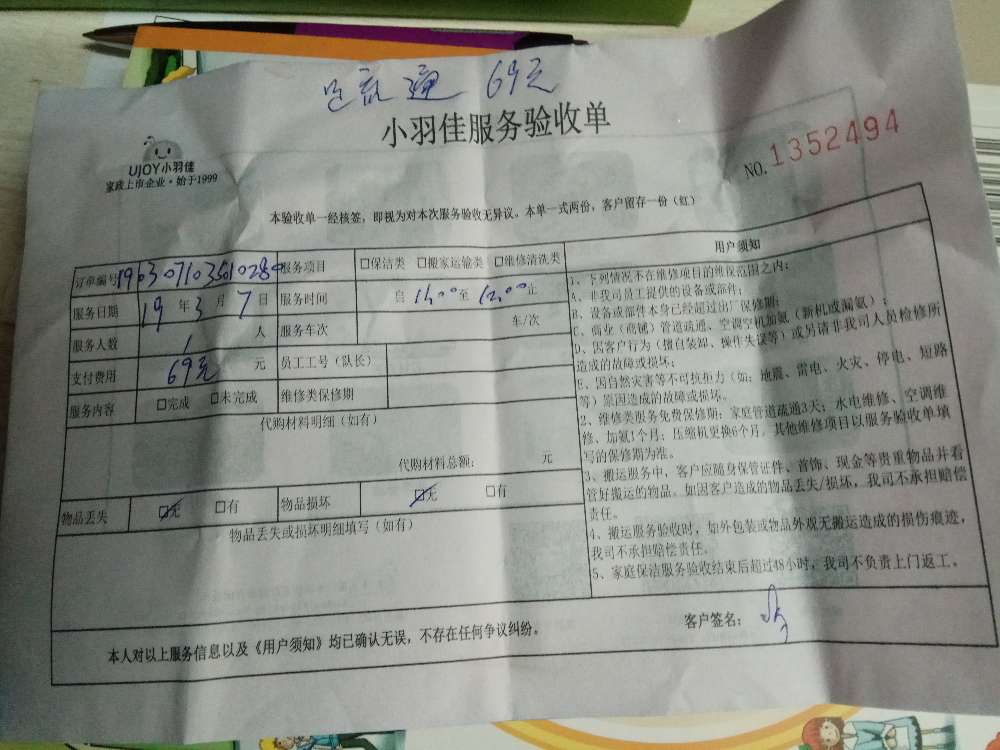 疏通 69元
小羽佳服务验收单
UJOY小羽佳
家政上市企业·始于1999
NO.1352494
本验收单一经核签，即视为对本次服务验收无异议。本单一式两份，客户留存一份（红）
订单编号 服务项目 □保洁类 □搬家运输类 □维修清洗类
服务日期 19 年 3 月 7 日 服务时间 自 11:00 至 12:00 止
服务人数 1 人 服务车次 车/次
支付费用 69元 元 员工工号（队长）
服务内容 □完成 □未完成 维修类保修期
代购材料明细（如有）
代购材料总额： 元
物品丢失 □无 □有 物品损坏 □无 □有
物品丢失或损坏明细填写（如有）
用户须知
1、下列情况不在维修项目的维保范围之内：
A、非我司员工提供的设备或部件；
B、设备或部件本身已经超过出厂保修期；
C、商业（商铺）管道疏通、空调空机加氨（新机或漏氨）；
D、因客户行为（擅自装卸、操作失误等）或另请非我司人员检修所
造成的故障或损坏；
E、因自然灾害等不可抗拒力（如：地震、雷电、火灾、停电、短路
等）原因造成的故障或损坏。
2、维修类服务免费保修期：家庭管道疏通3天；水电维修、空调维
修、加氨1个月；压缩机更换6个月。其他维修项目以服务验收单填
写的保修期为准。
3、搬运服务中，客户应随身保管证件、首饰、现金等贵重物品并看
管好搬运的物品。如因客户造成的物品丢失/损坏，我司不承担赔偿
责任。
4、搬运服务验收时，如外包装或物品外观无搬运造成的损伤痕迹，
我司不承担赔偿责任。
5、家庭保洁服务验收结束后超过48小时，我司不负责上门返工。
本人对以上服务信息以及《用户须知》均已确认无误，不存在任何争议纠纷。
客户签名：